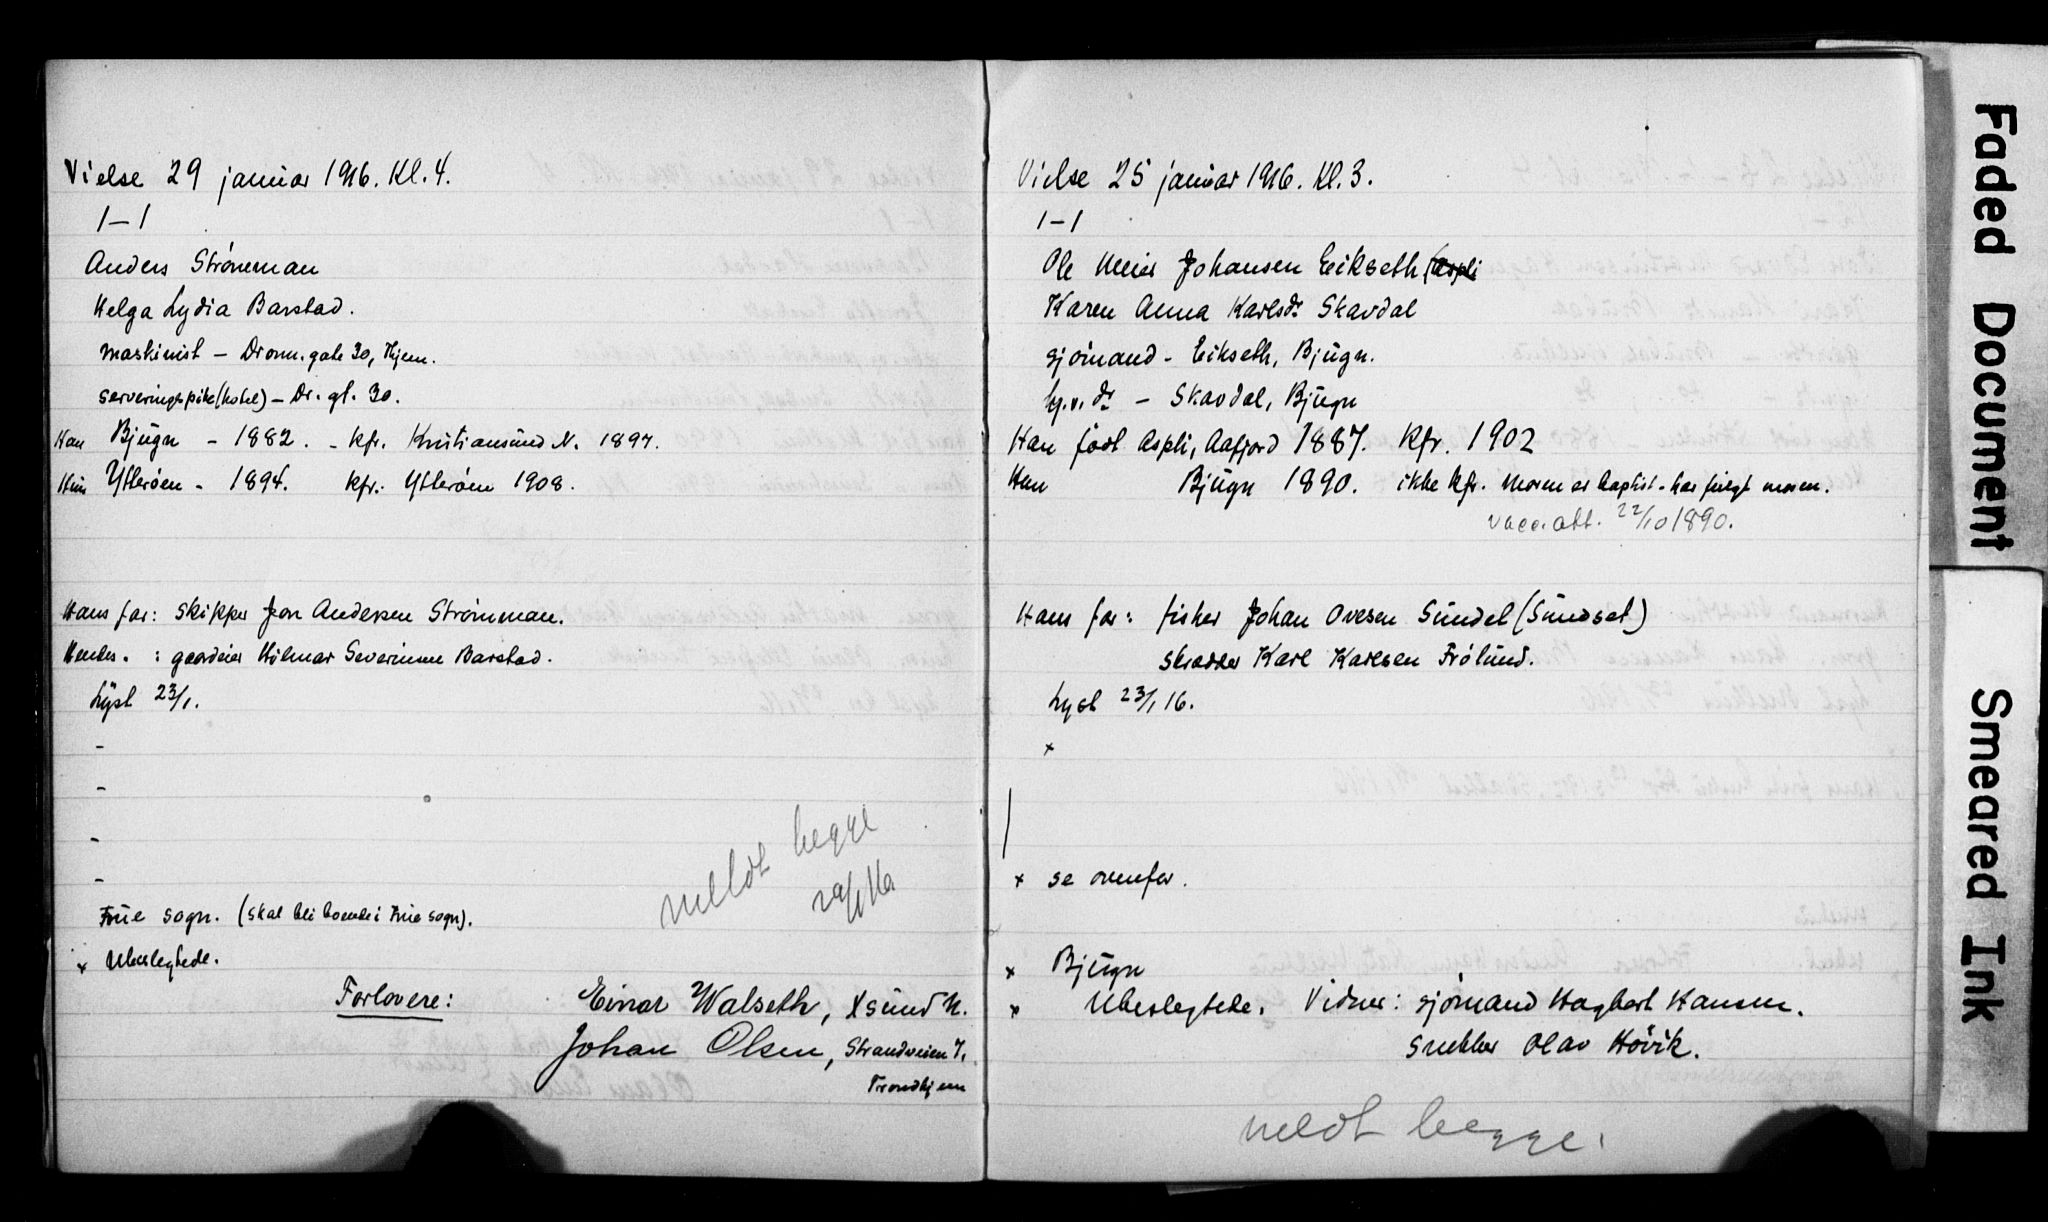 Vielse 29 januar 1916. Kl. 4.
1-1
Anders Strömman
Helga Lydia Barstad.
maskinist - Dronn. gate 30, Thjem.
serveringspike (hotel) - Dr. gt. 30.
Han Bjugn - 1882. - kfr. Kristiansund N. 1897.
Hun Ytterøen - 1894. kfr.: Ytterøen 1908.
Hans far: skipper Jon Andersen Strömman.
Hendes. : gaardeier Hilmar Severinsen Barstad.
Lyst 23/1.
-
-
-
-
meldt begge
Frue sogn. (skal bli boende i Frue sogn).
x Ubeslegtede.
Forlovere: Einar Walseth, Xsund N.
Johan Olsen, Strandveien 7,
Trondhjem
Vielse 25 januar 1916. Kl. 3.
1-1
Ole Meier Johansen Eikseth (Aspli
Karen Anna Karlsdr Skavdal
sjömand - Eikseth, Bjugn.
hj.v. dr - Skavdal, Bjugn
Han født Aspli, Aafjord 1887. kfr. 1902
Hun Bjugn 1890. ikke kfr. Moren er baptist - har fulgt moren.
vacc. att. 22/10 1890.
Hans far: fisker Johan Ovesen Sundet (Sundset)
skrædder Karl Karlsen Frölund.
Lyst 23/1 16.
x
x se ovenfor.
x Bjugn
x Ubeslegtede. Vidner: sjömand Hagbart Hansen.
snekker Olav Hövik.
meldt begge.
Faded Document
Smeared Ink